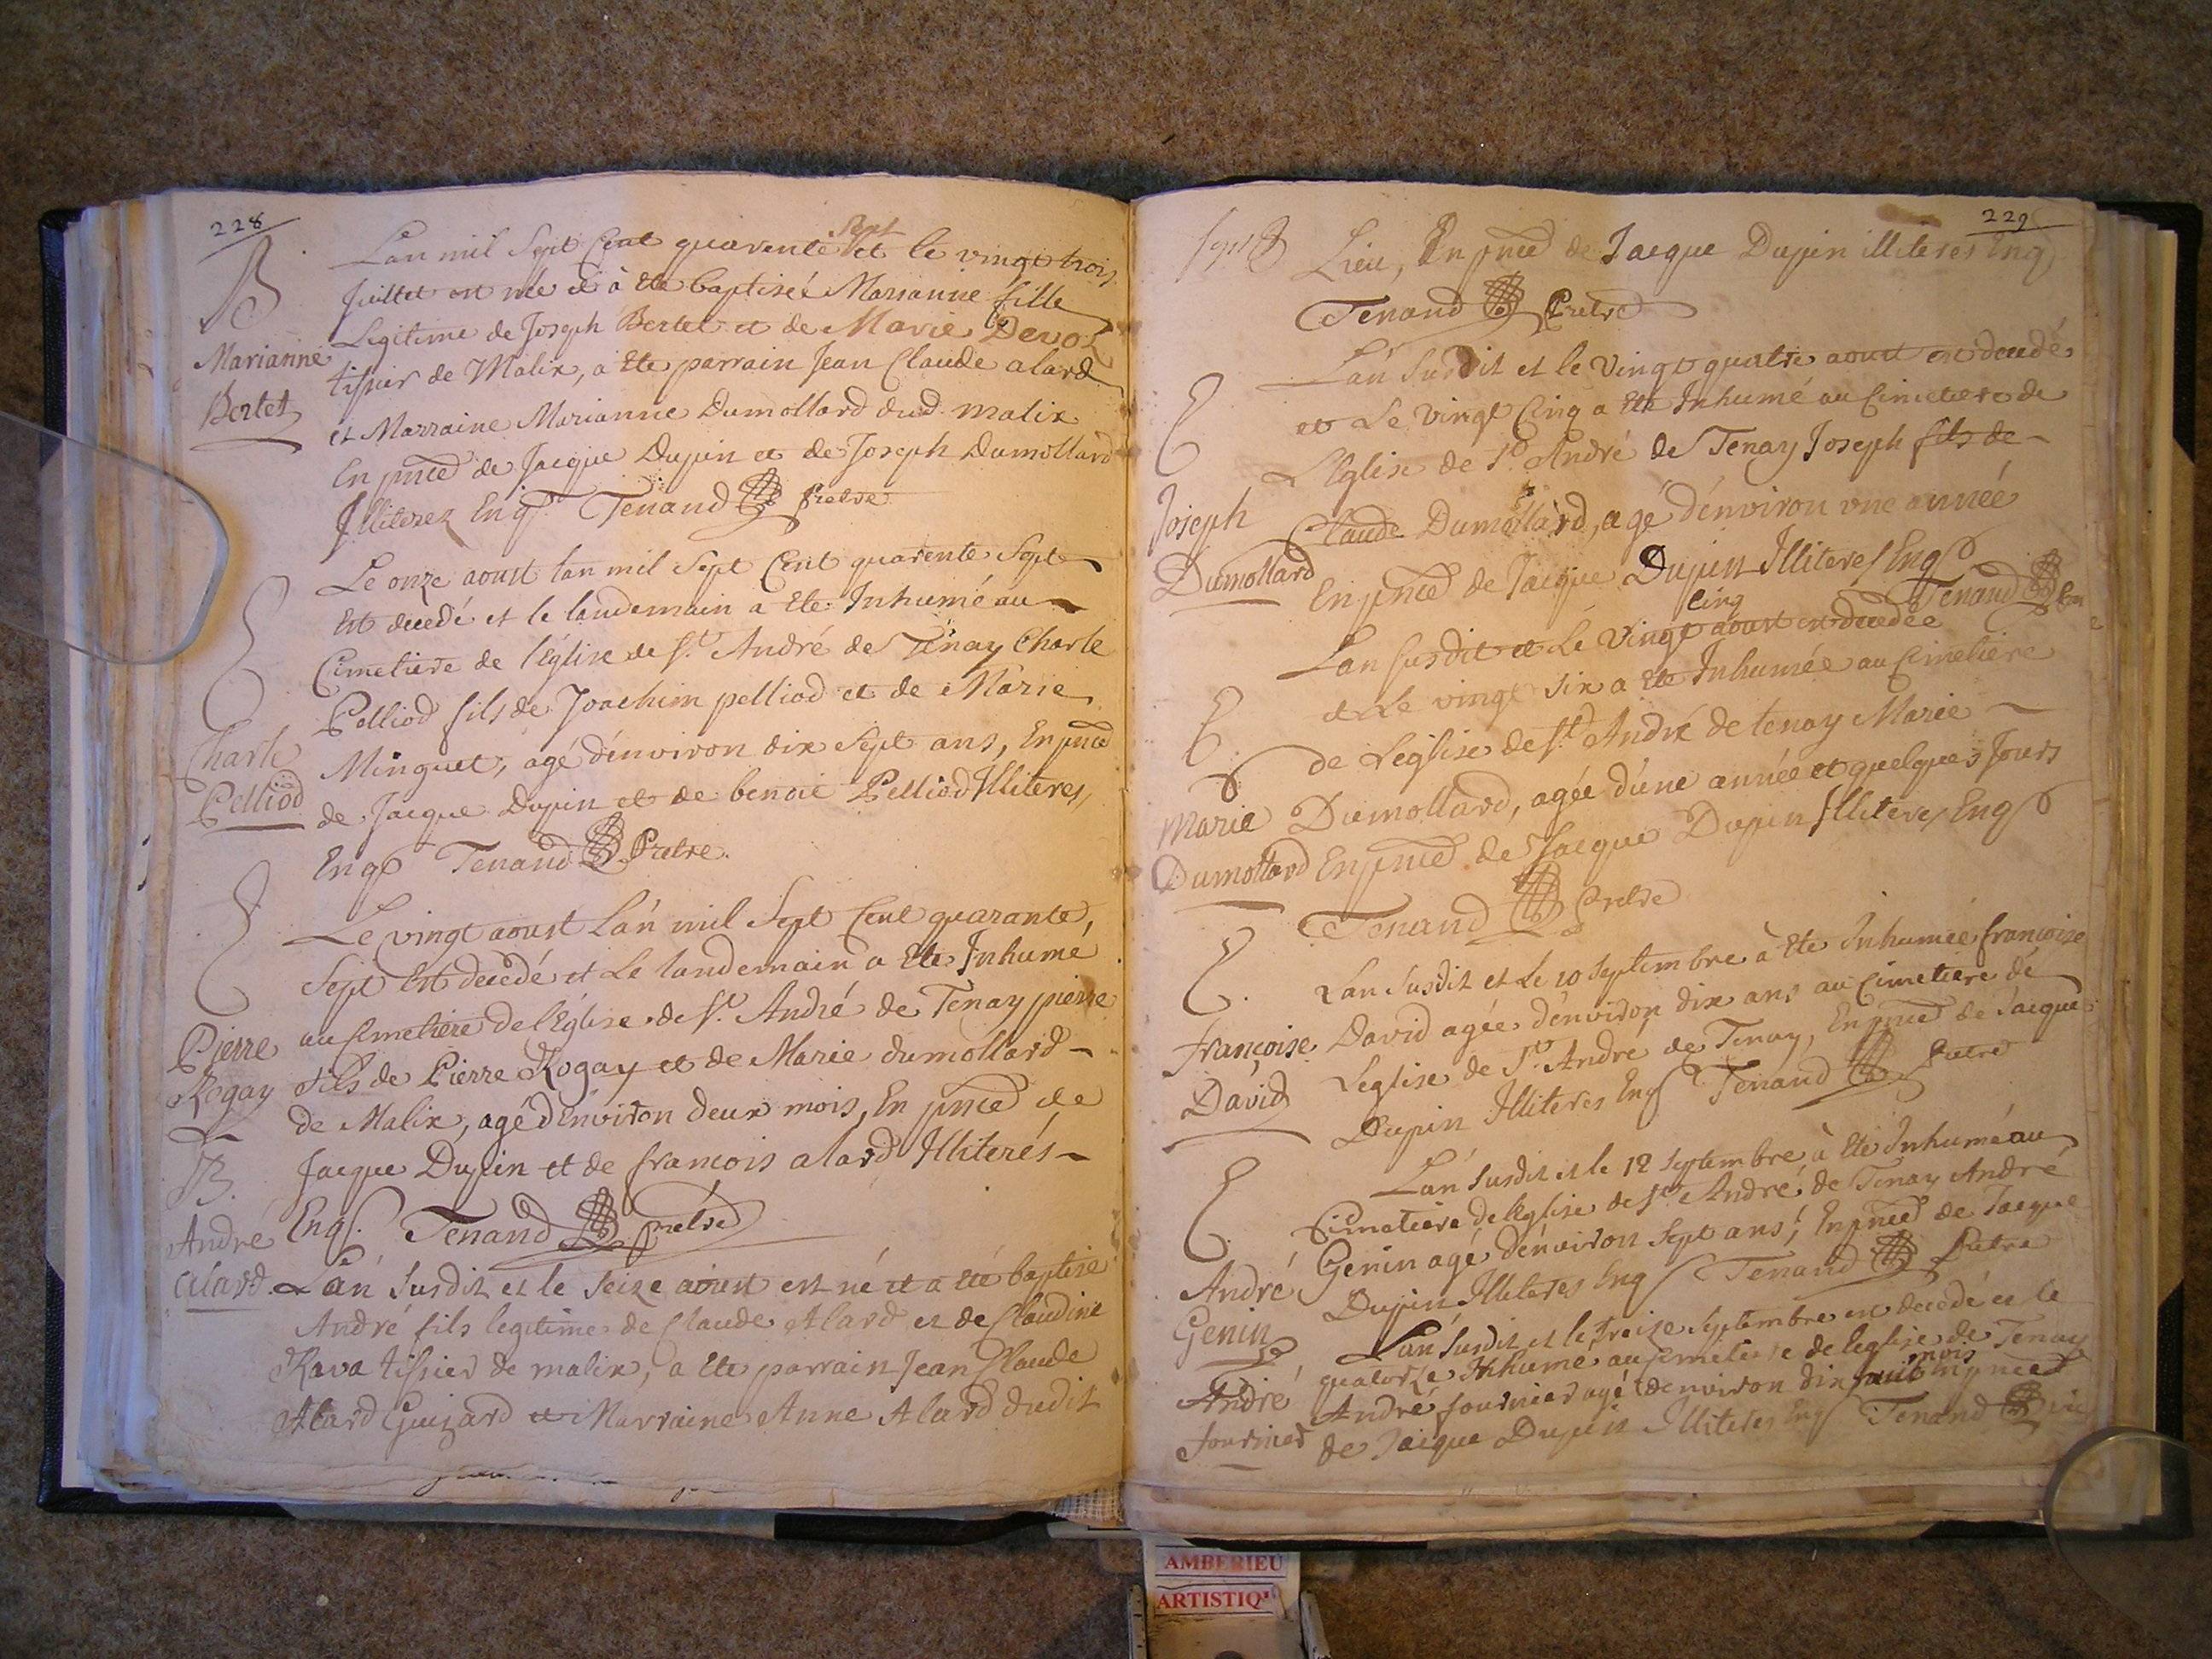 228
B
Marianne
Bertet
L'an mil Sept Cent quarente Sept et le vingt trois
Juillet est née et à ete baptisée Marianne fille
Legitime de Joseph Bertet et de Marie Devoz
tissier de Malix, a ete parrain Jean Claude alard
et Marraine Marianne Dumollard dud. malix
En pnce de Jacque Dupin et de Joseph Dumollard
Illiterez Enqs Tenand Pretre
E
Charle
Pelliod
Le onze aoust lan mil Sept Cent quarente Sept
Est décédé et le landemain a ete Inhumé au
Cimetiere de l'église de St. André de Tenay Charle
Pelliod fils de Joachim pelliod et de Marie
Minguet, agé d'environ dix Sept ans, En pnce
de Jacque Dupin et de benoit Pelliod Illiteres,
Enqs Tenand Pretre.
E
Pierre
Rogay
Le vingt aoust L'an mil Sept Cent quarante
Sept Est decedé et Le landemain a ete Inhumé
au Cimetiere de l'Eglise de St. André de Tenay pierre
fils de Pierre Rogay et de Marie dumollard
de Malix, agé d'environ deux mois, En pnce de
Jacque Dupin et de francois alard Illiterés
Enqs. Tenand Pretre
B.
André
alard.
L'an Susdit et le Seize aoust est né et a eté baptisé
André fils legitime de Claude Alard et de Claudine
Rava tissier de malix, a ete parrain Jean Claude
Alard Guizard et Marraine Anne Alard dudit
229
Lieu, En pnce de Jacque Dupin illiteres Enq
Tenand Pretre
E
Joseph
Dumollard
L'an Susdit et le Vingt quatre aoust est decedé
et Le Vingt Cinq a ete Inhumé au Cimetiere de
L'Eglise de St. André de Tenay Joseph fils de
Claude Dumollard, agé d'environ une année
En pnce de Jacque Dupin Illiteres Enqs
Tenand
E
Marie
Dumollard
L'an susdit et Le Vingt cinq aoust est decedée
et Le vingt Six a ete Inhumée au Cimetiere
de L'eglise de St. André de tenay Marie
Dumollard, agée d'une année et quelques Jours
En pnce de Jacque Dupin Illiteres Enqs
Tenand Pretre
E.
françoise
David
L'an Susdit et Le 10 Septembre à ete Inhumée françoise
David agée d'environ dix ans au Cimetiere de
L'eglise de St. André de Tenay, En pnce de Jacque
Dupin Illiteres Enqs Tenand Pretre
E.
André
Genin
L'an Susdit et le 12 Septembre à ete Inhumé au
Cimetiere de l'eglise de St. André de Tenay André
Genin agé d'environ Sept ans, En pnce de Jacque
Dupin Illiteres Enqs Tenand Pretre
André
fournier
L'an Susdit et le treize Septembre est decedé et le
quatorze Inhumé au Cimetiere de l'eglise de Tenay
André fournier agé d'environ dix huit mois En pnce
de Jacque Dupin Illiteres Enqs Tenand
AMBERIEU
ARTISTIQ